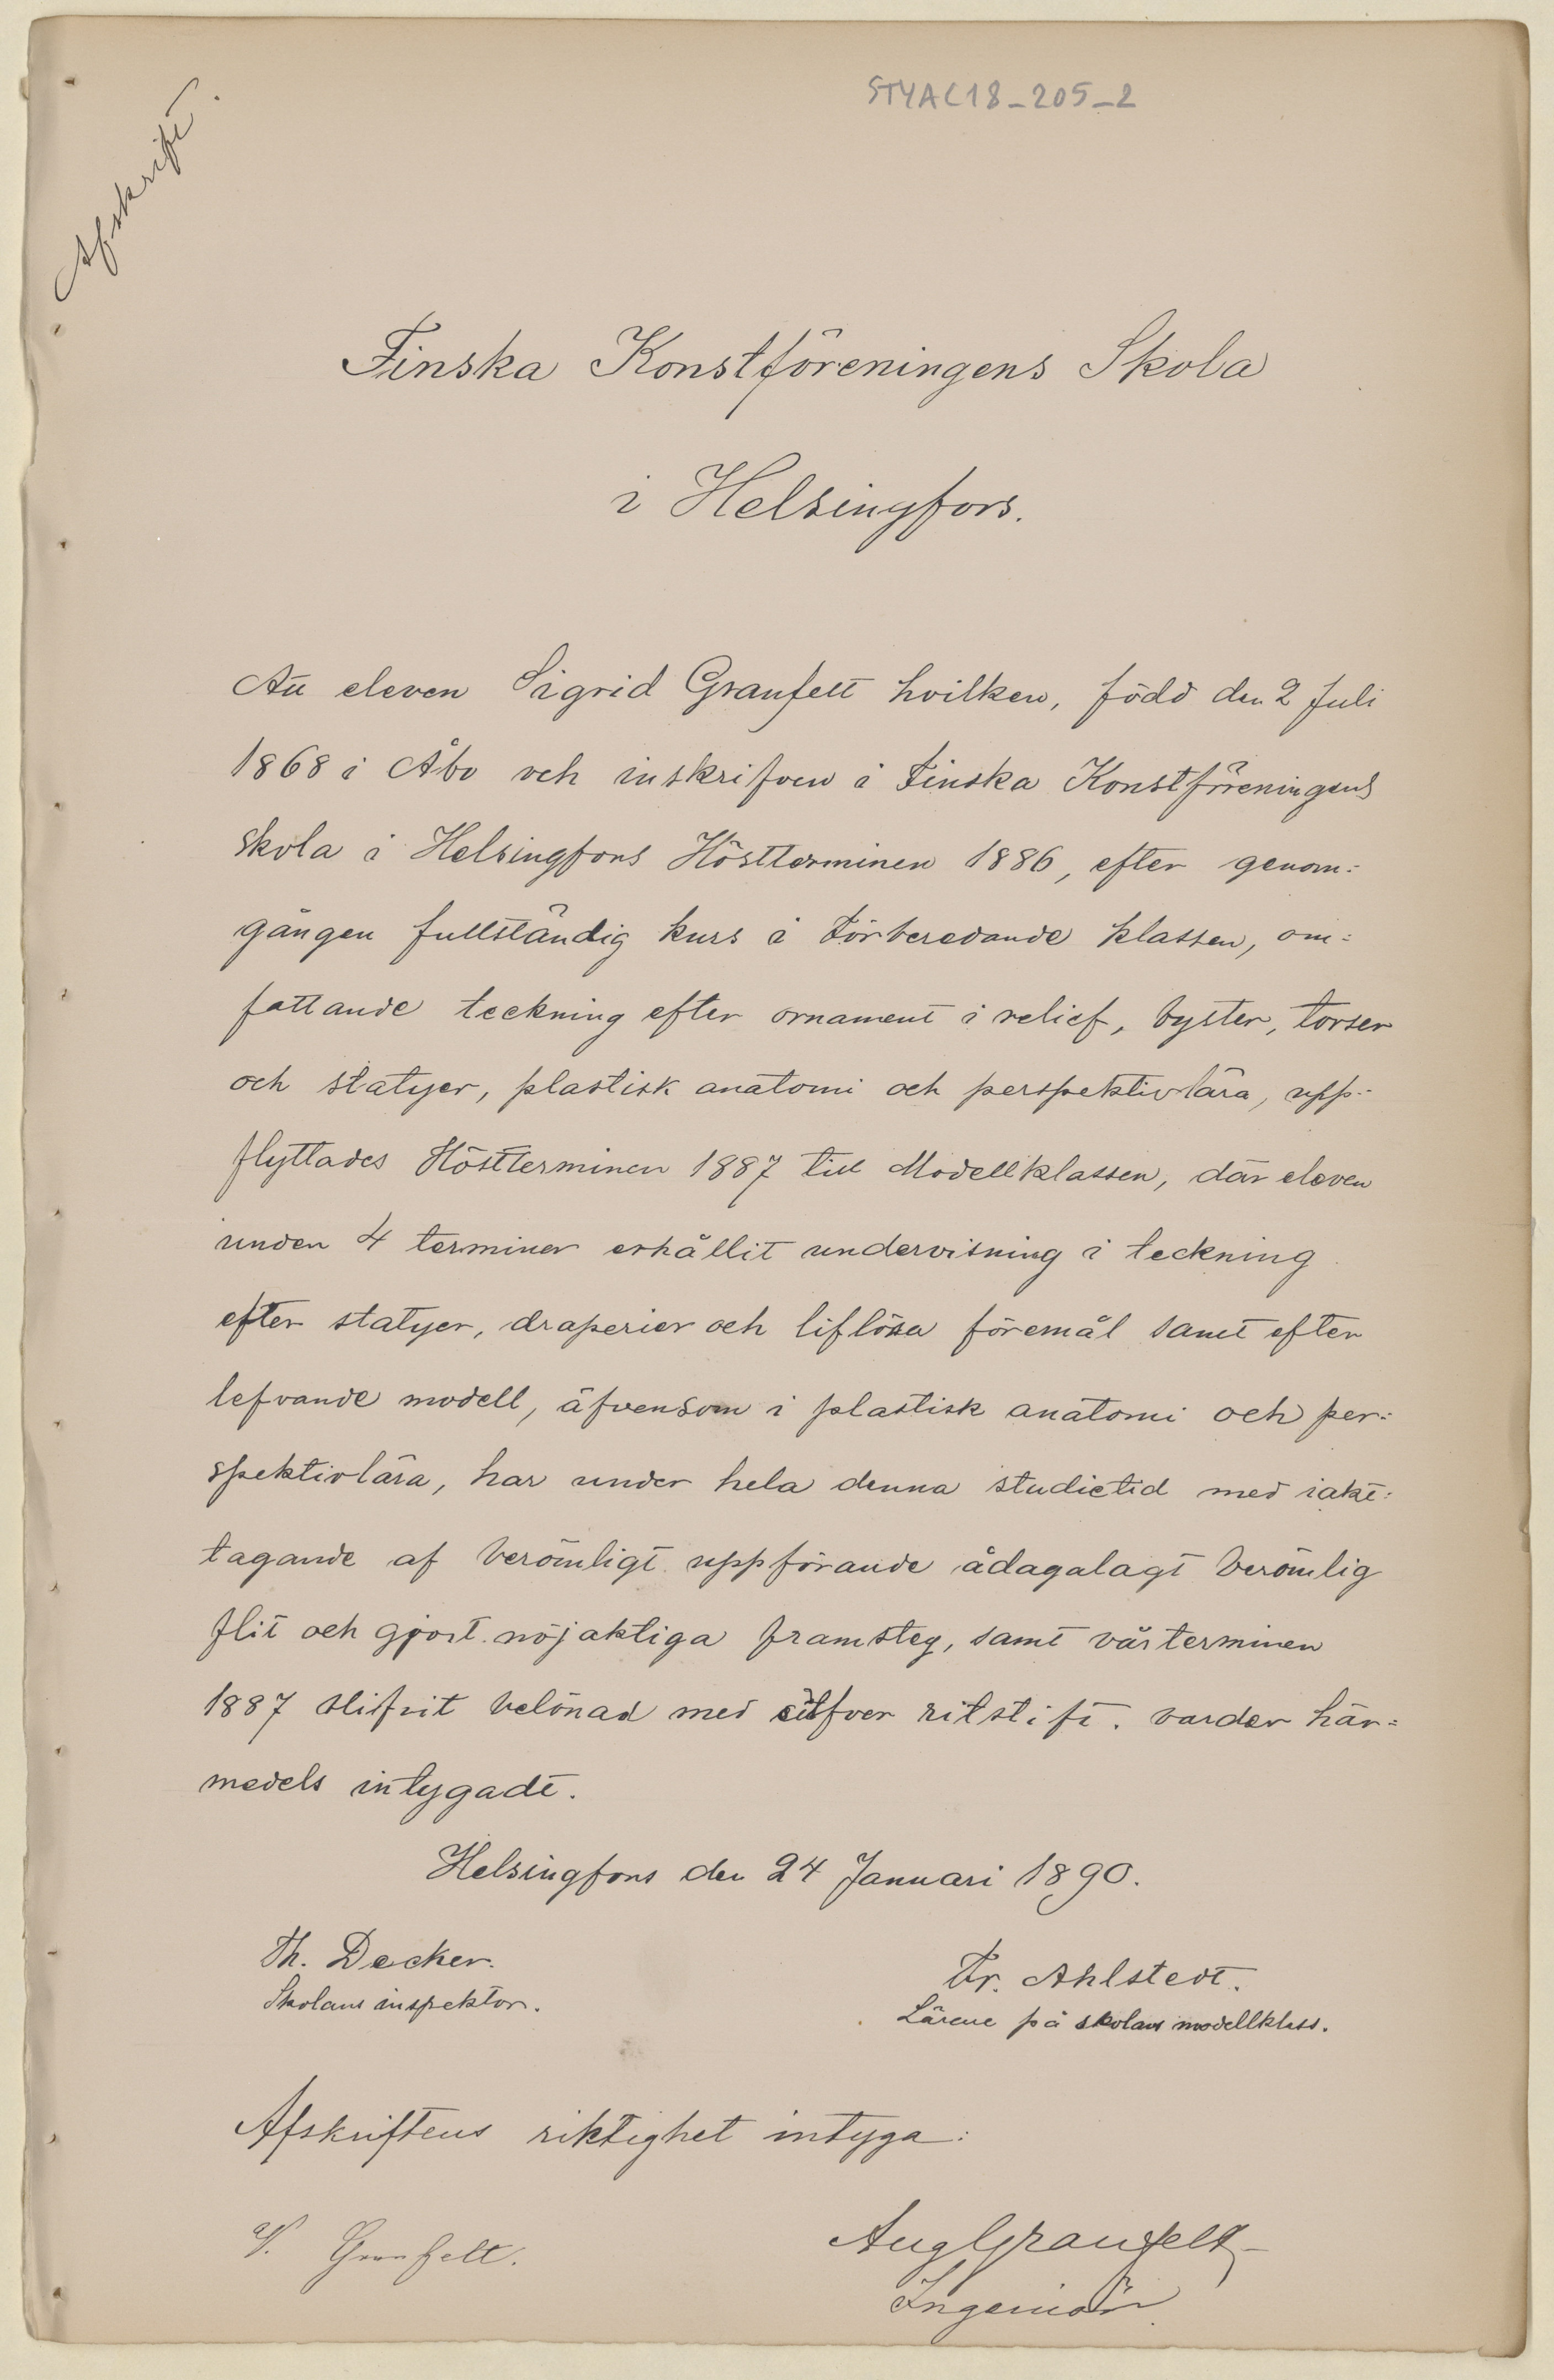 STYAC18_205_2
Afskrift.
Finska Konstföreningens Skola
i Helsingfors.
Att eleven Sigrid Granfelt hvilken, född den 2 Juli
1868 i Åbo och inskrifven i Finska Konstföreningens
skola i Helsingfors Höstterminen 1886, efter genom=
gången fullständig kurs i Förberedande klassen, om=
fattande teckning efter ornament i relief, byster, torser
och statyer, plastisk anatomi och perspektivlära, upp=
flyttades Höstterminen 1887 till Modellklassen, där eleven
under 4 terminer erhållit undervisning i teckning
efter statyer, draperier och liflösa föremål samt efter
lefvande modell, äfvensom i plastisk anatomi och per=
spektivlära, har under hela denna studietid med iakt=
tagande af berömligt uppförande ådagalagt berömlig
flit och gjort nöjaktiga framsteg, samt vårterminen
1887 blifvit belönad med silfver ritstift. varder här=
medels intygadt.
Helsingfors den 24 Januari 1890.
Th. Decker.
Skolans inspektor.
Fr. Ahlstedt.
Lärare på skolans modellklass.
Afskriftens riktighet intyga:
Granfelt.
Aug Granfelt
Ingeniör